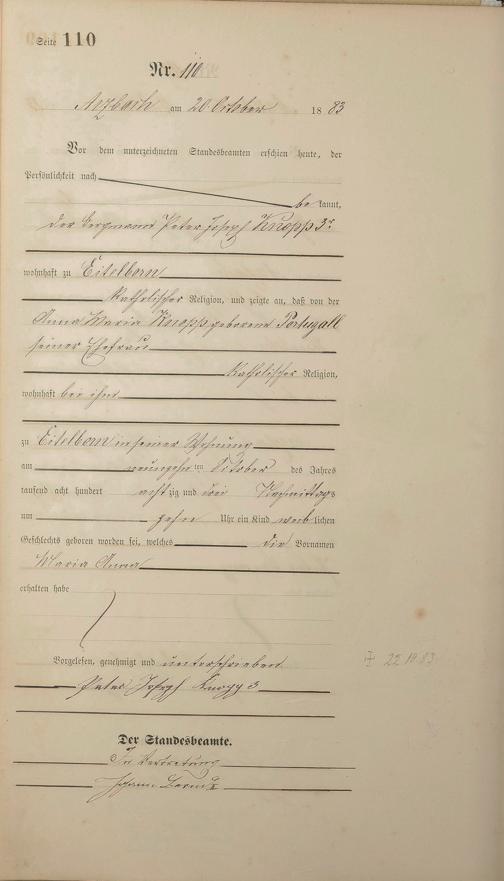 Seite 110
Nr. 110
Arzbach am 20. Oktober 1883
Vor dem unterzeichneten Standesbeamten erschien heute, der
Persönlichkeit nach
be kannt,
der Bergmann Peter Joseph Knopp 3r
wohnhaft zu Eitelborn
katholischer Religion, und zeigte an, daß von der
Anna Maria Knopp geborene Portugall
seiner Ehefrau
katholischer Religion,
wohnhaft bei ihm
zu Eitelborn in seiner Wohnung
am neunzehnten Oktober des Jahres
tausend acht hundert achtzig und drei Nachmittags
um zehn Uhr ein Kind weiblichen
Geschlechts geboren worden sei, welches die Vornamen
Maria Anna
erhalten habe
Vorgelesen, genehmigt und unterschrieben
Peter Joseph Knopp 3
Der Standesbeamte.
In Vertretung
Johann